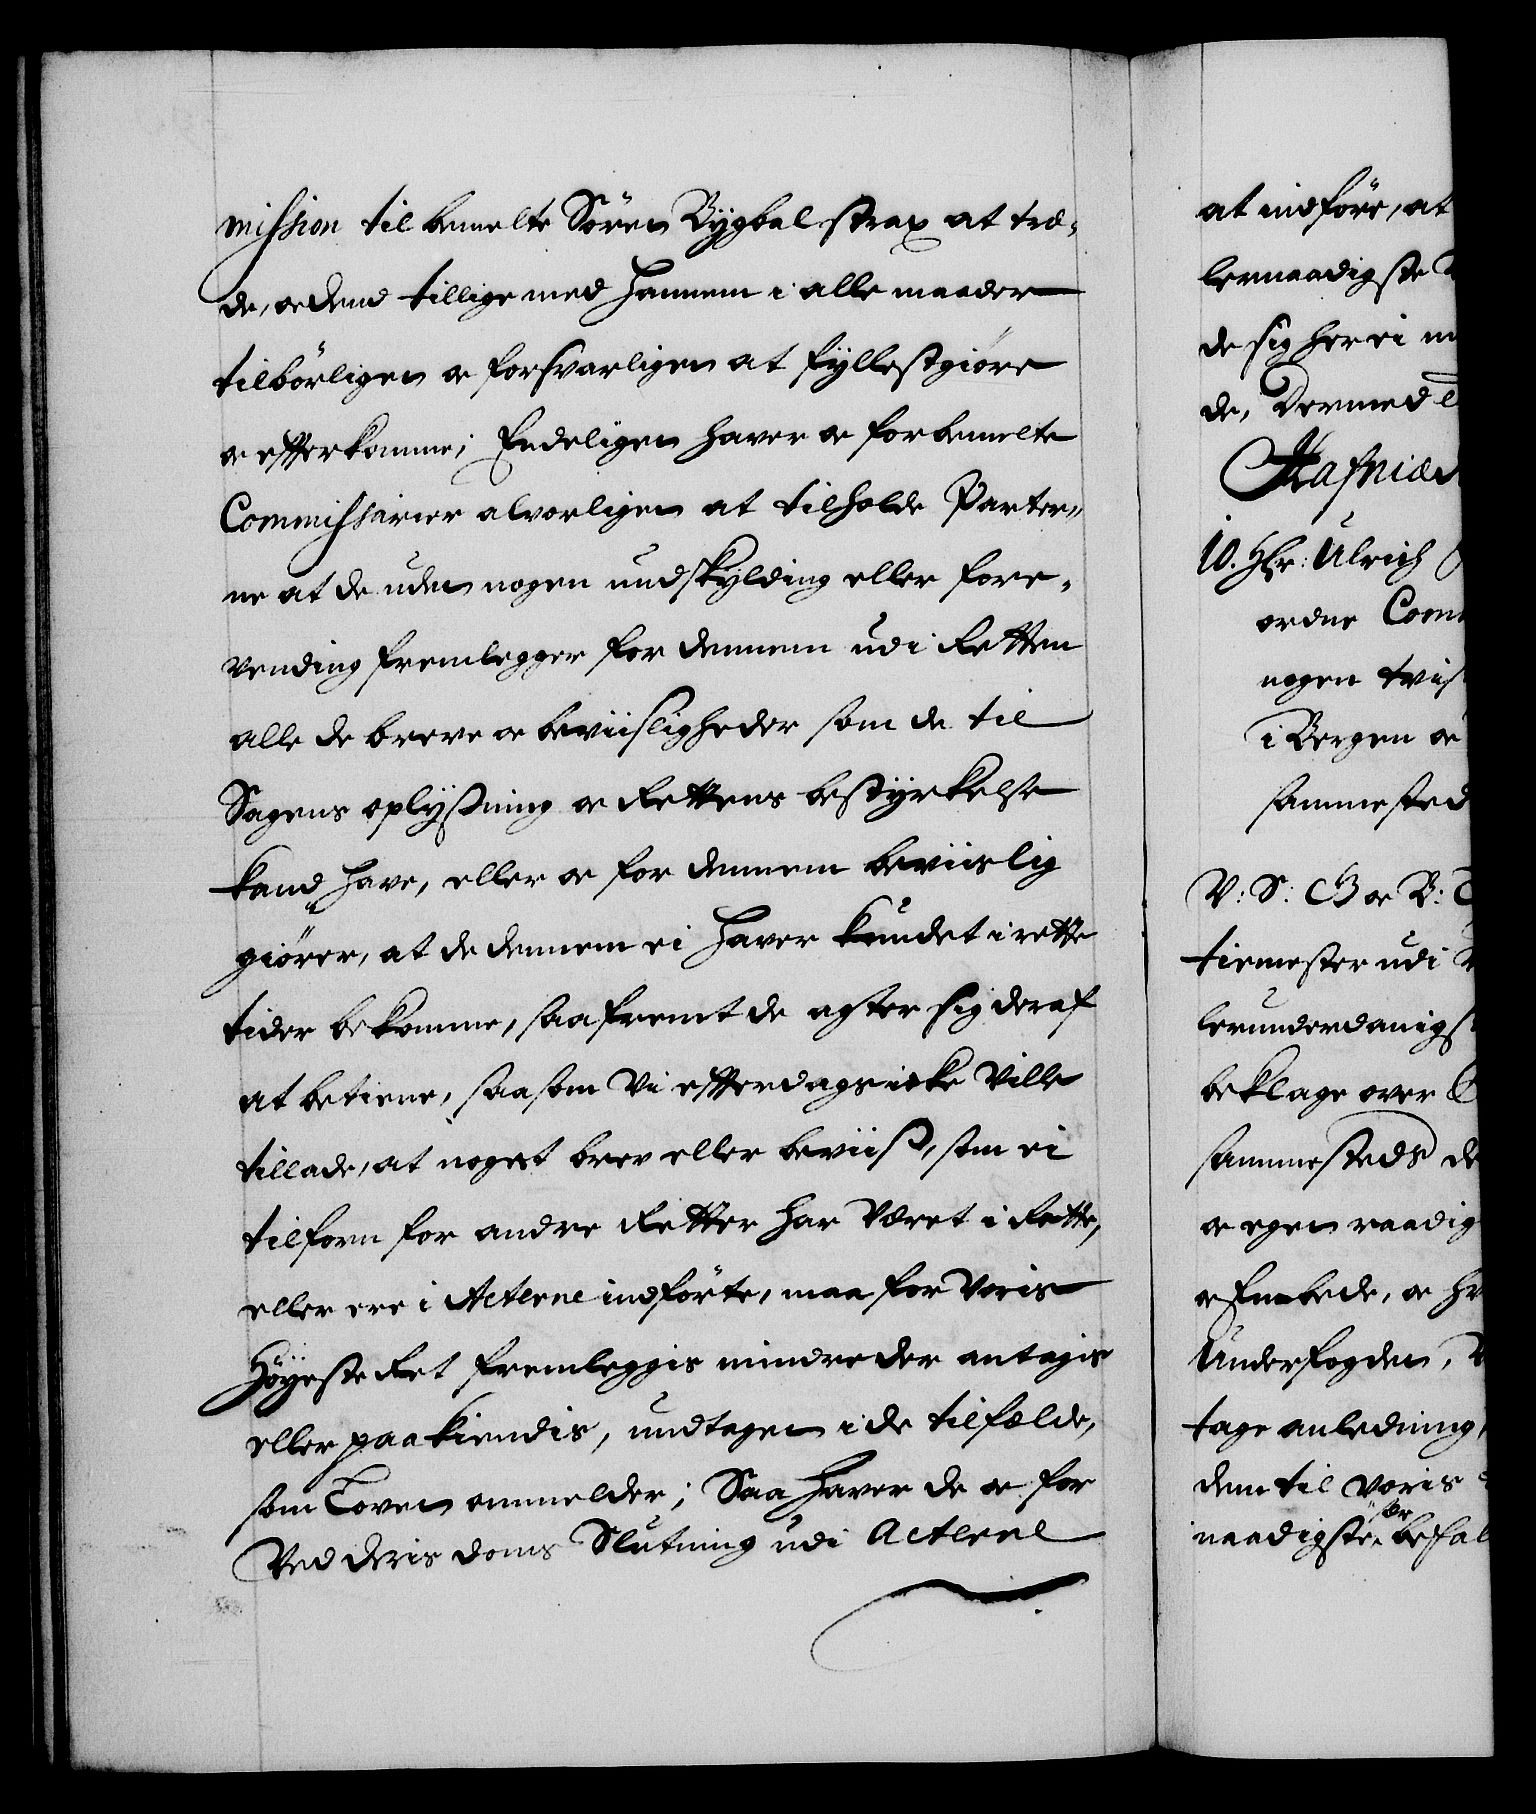 mission til bemelte Sören Bygbal strax at træ-
de, oc dend tillige med hannem i alle maader
tilbörligen oc forsvarligen at fyllestgiöre
oc effterkomme; Endeligen haver oc forbemelte
Commissarier alvorligen at tilholde Parter-
ne at de uden nogen undskylding eller fore-
vending fremlegger for dennem udi Retten
alle de breve oc beviisligheder som de til
Sagens oplyßning oc Rettens bestyrkelse
kand have, eller oc for dennem beviislig
giörer, at de dennem ei haver kundet i rette
tider bekomme, saafremt de agter sig deraf
at betiene, saasom Vi effterdags icke Ville
tillade, at noget brev eller beviiß, som ei
tilforn for andre Retter har Været i Rette,
eller ere i Acterne indförte, maa for Voris
Höyeste Ret fremleggis mindre der antagis
eller paakiendis, undtagen i de tilfælde,
som Loven ommelder; Saa haver de oc for
Ved deris doms Slutning udi Acterne
at indföre, at
lernaadigste
de sig her ei
de, Dermed
Hafniæ
10. Hr: Ulrich
ordne Com
nogen tvis
i Bergen oc
sammested
V: S: G oc B:
tiemester udi
lerunderdanigs
beklage over
sammesteds de
oc egen raadig
oc Embede, oc
Underfogden,
tage anledning,
dem til Voris
naadigste, er befal